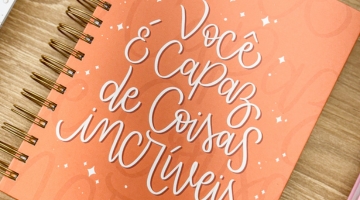 Você
é Capaz
de Coisas
incríveis